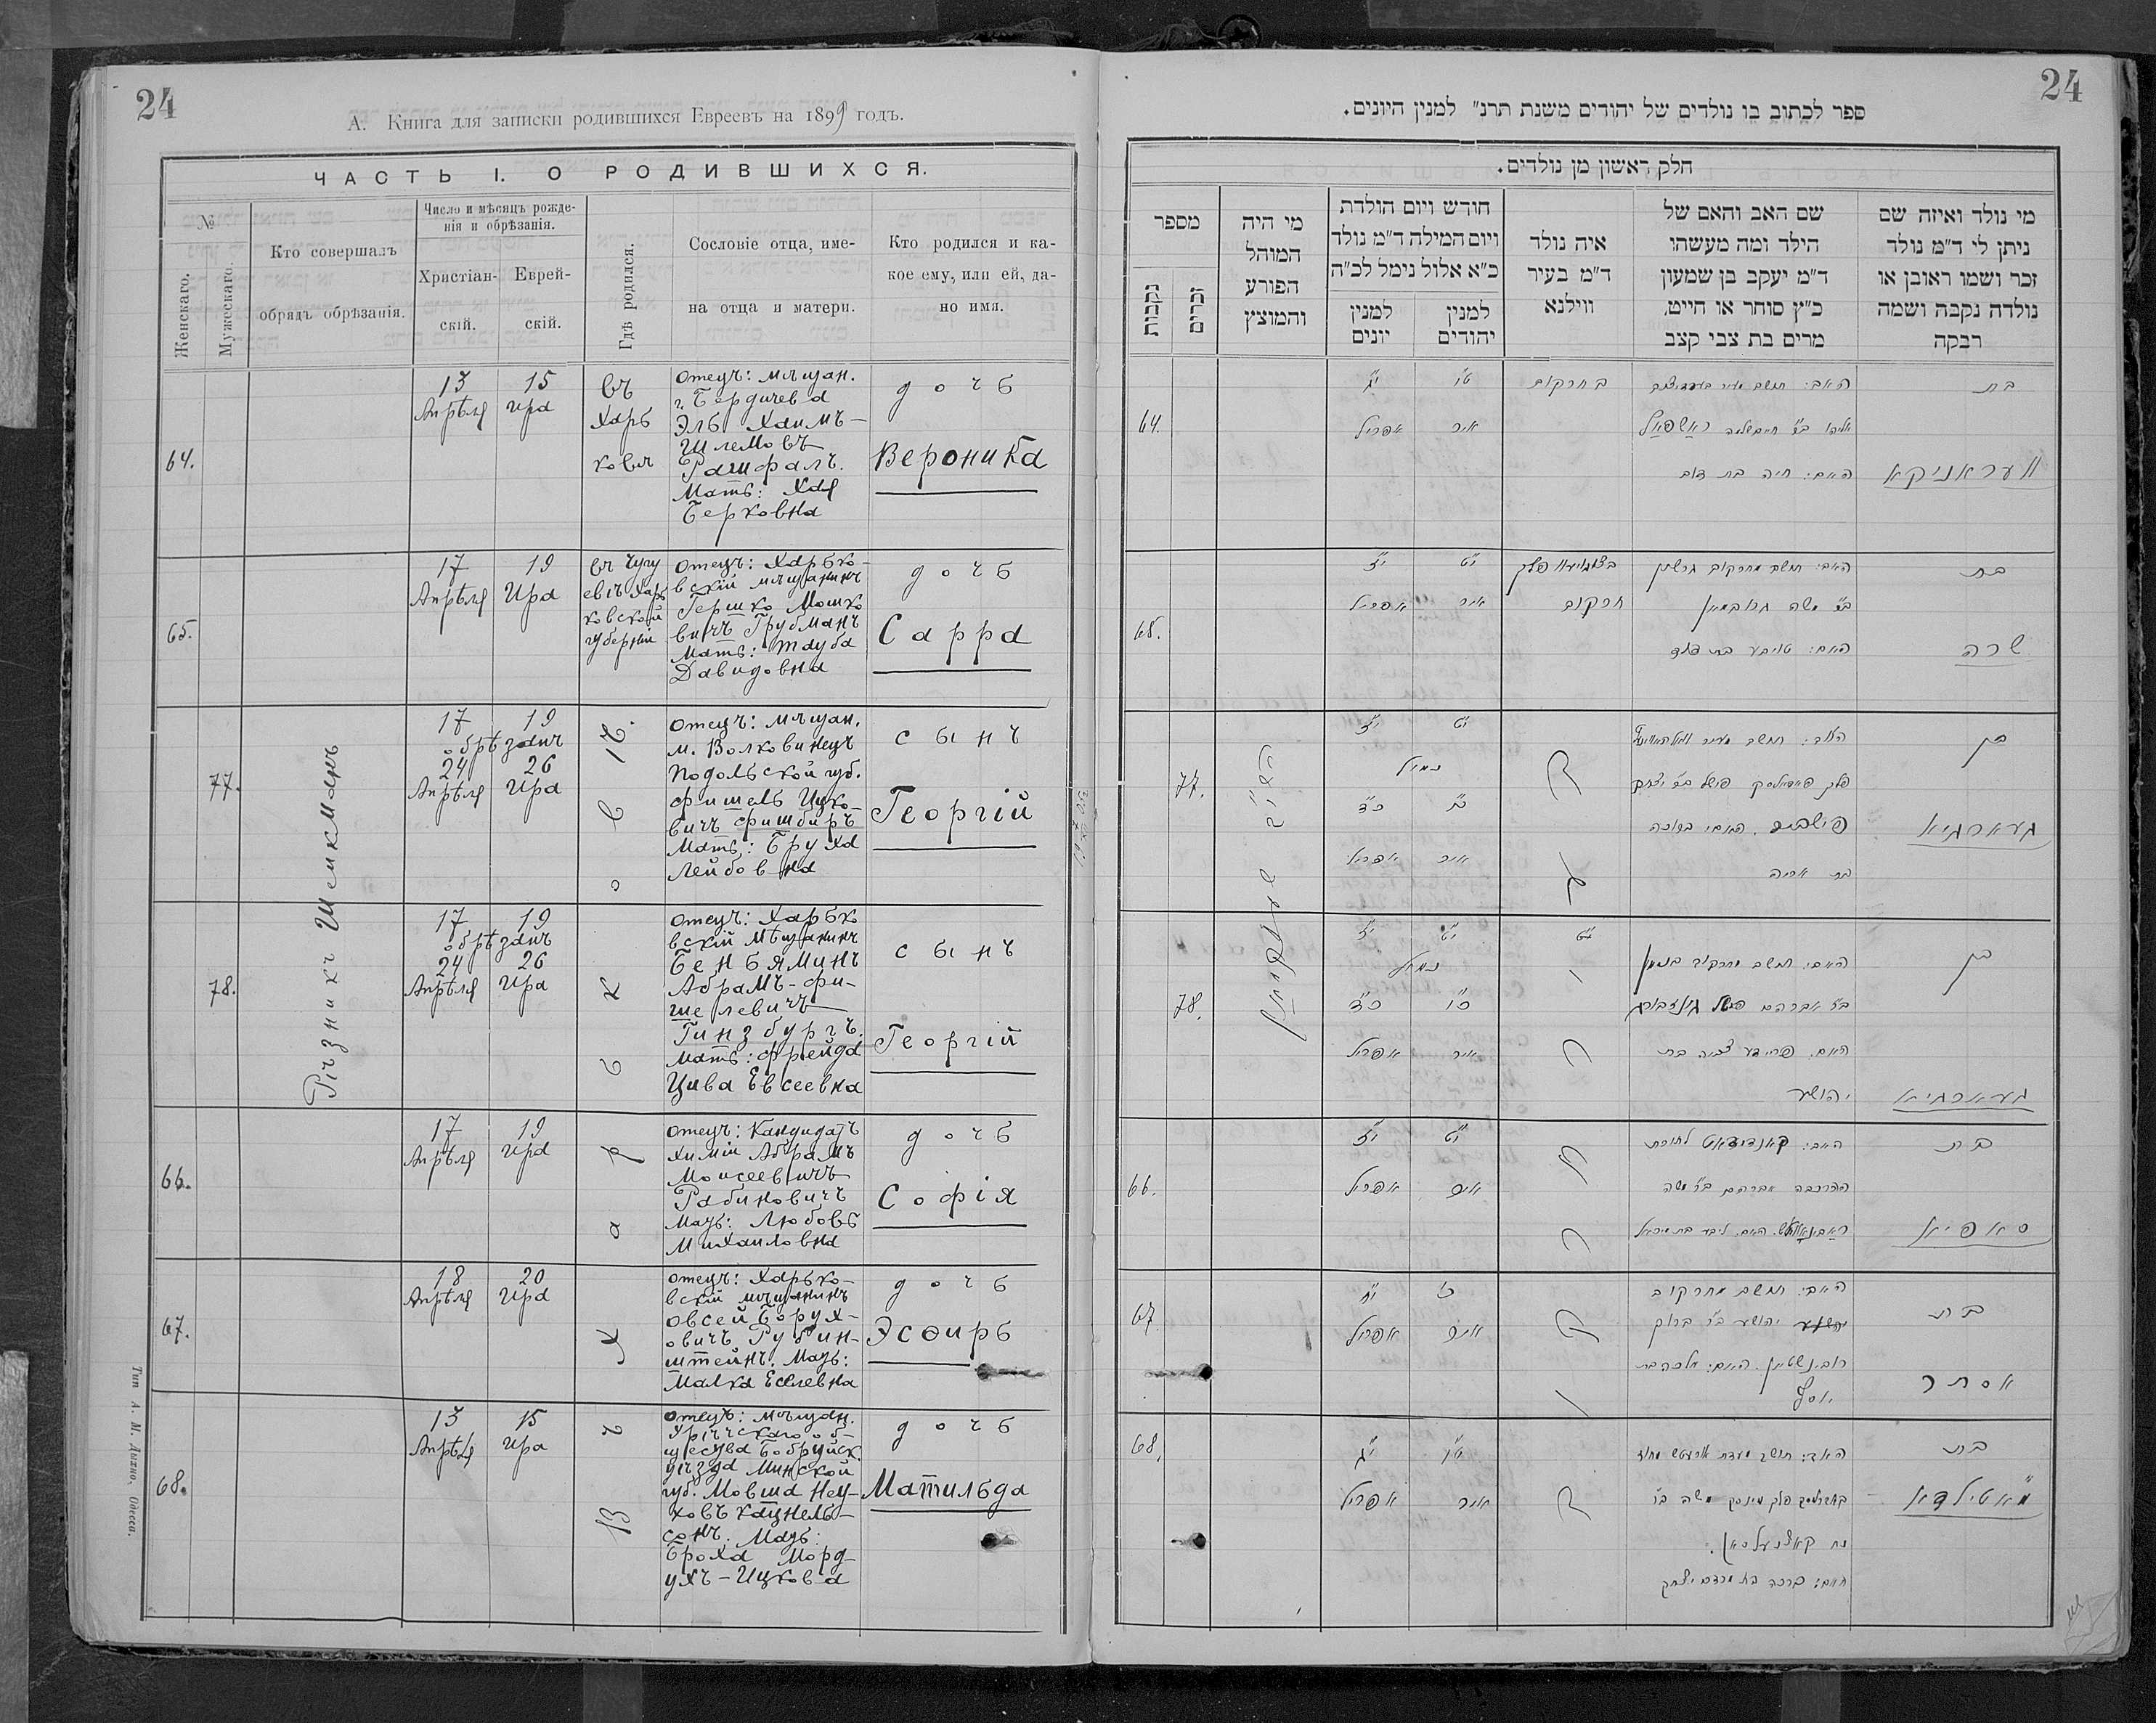 24
А. Книга для записки родившихся Евреевъ на 1899 годъ.
ЧАСТЬ I. О РОДИВШИХСЯ.
№
Женскаго.
Мужескаго.
Кто совершалъ
обрядъ обрѣзанія.
Число и мѣсяцъ рожде-
нія и обрѣзанія.
Христіан-
скій.
Еврей-
скій.
Гдѣ родился.
Сословіе отца, име-
на отца и матери.
Кто родился и ка-
кое ему, или ей, да-
но имя.
64.
13 15
Апрѣля Ира
въ
Харь
ковѣ
Отецъ: мѣщан.
г. Бердичева
Эль Хаимъ-
Шлемовъ
Рашфалъ.
Мать: Хая
Берковна
дочь
Вероника
65.
17 19
Апрѣля Ира
въ Чугу
евѣ Харь
ковской
губерніи
Отецъ: Харько-
вскій мѣщанинъ
Гершко Мошко
вичъ Грубманъ
Мать: Тауба
Давидовна
дочь
Сарра
77.
Рѣзникъ Шейкманъ
17 19
обрѣзанъ
24 26
Апрѣля Ира
въ Харьковѣ.
Отецъ: мѣщан.
м. Волковинецъ
Подольской губ.
Фишель Ицко-
вичъ Фишбиръ
Мать: Бруха
Лейбовна
сынъ
Георгій
78.
17 19
обрѣзанъ
24 26
Апрѣля Ира
Отецъ: Харько
вскій мѣщанинъ
Беньяминъ
Абрамъ-Фи-
шелевичъ
Гинзбургъ.
Мать: Фрейда
Цива Евсеевна
сынъ
Георгій
66.
17 19
Апрѣля Ира
Отецъ: Кандидатъ
Химіи Абрамъ
Моисеевичъ
Рабиновичъ
Мать: Любовь
Михаиловна
дочь
Софія
67.
18 20
Апрѣля Ира
Отецъ: Харько-
вскій мѣщанинъ
Овсей Борух-
овичъ Рубин-
штейнъ. Мать:
Малка Еселевна
дочь
Эсѳирь
68.
13 15
Апрѣля Ира
Отецъ: мѣщан.
об-
щества Бобруйск.
уѣзда Минской
губ. Мовша Неу-
ховъ Кацнель-
сонъ. Мать:
Броха Морд-
ухъ-Ицкова
дочь
Матильда
Тип. А. М. Дыхно, Одесса.
24
ספר לכתוב בו נולדים של יהודים משנת תרנ״ למנין היונים.
חלק ראשון מן נולדים.
מי נולד ואיזה שם
ניתן לי ד״מ נולד
זכר ושמו ראובן או
נולדה נקבה ושמה
רבקה
שם האב והאם של
הילד ומה מעשהו
ד״מ יעקב בן שמעון
כ״ץ סוחר או חייט,
מרים בת צבי קצב
איה נולד
ד״מ בעיר
ווילנא
חודש ויום הולדת
ויום המילה ד״מ נולד
כ״א אלול נימל לכ״ה
למנין
יהודים
למנין
יונים
מי היה
המוהל
הפורע
והמוצץ
מספר
זכרים
נקבות
בת
וועראניקא
האם: חיה בת דוב
בחרקוב
ט״ו י״ג
אייר אפריל
64.
בת
שרה
האם: טויבע בת דוד
חרקוב
י״ט י״ז
אייר אפריל
65.
בן
געארגיא
בת אריה
י״ט י״ז
נמול
כ״ד
אייר אפריל
77.
בן
געארגיא
האב: תושב מחרקוב
יהושע
י״ט י״ז
נמול
כ״ו כ״ד
אייר אפריל
78.
בת
סאפיא
האב: קאנדידאט
י״ט י״ז
אייר אפריל
66.
בת
אסתר
האב: תושב מחרקוב
יהושע ב״ר ברוך
רובינשטיין. האם: מלכה בת
יוסף
כ׳ י״ח
אייר אפריל
67.
בת
מאטילדא
פלך מינסק משה ב״ר
נח קאצנעלסאן.
האם: ברכה בת מרדכי יצחק
ט״ו י״ג
אייר אפריל
68.